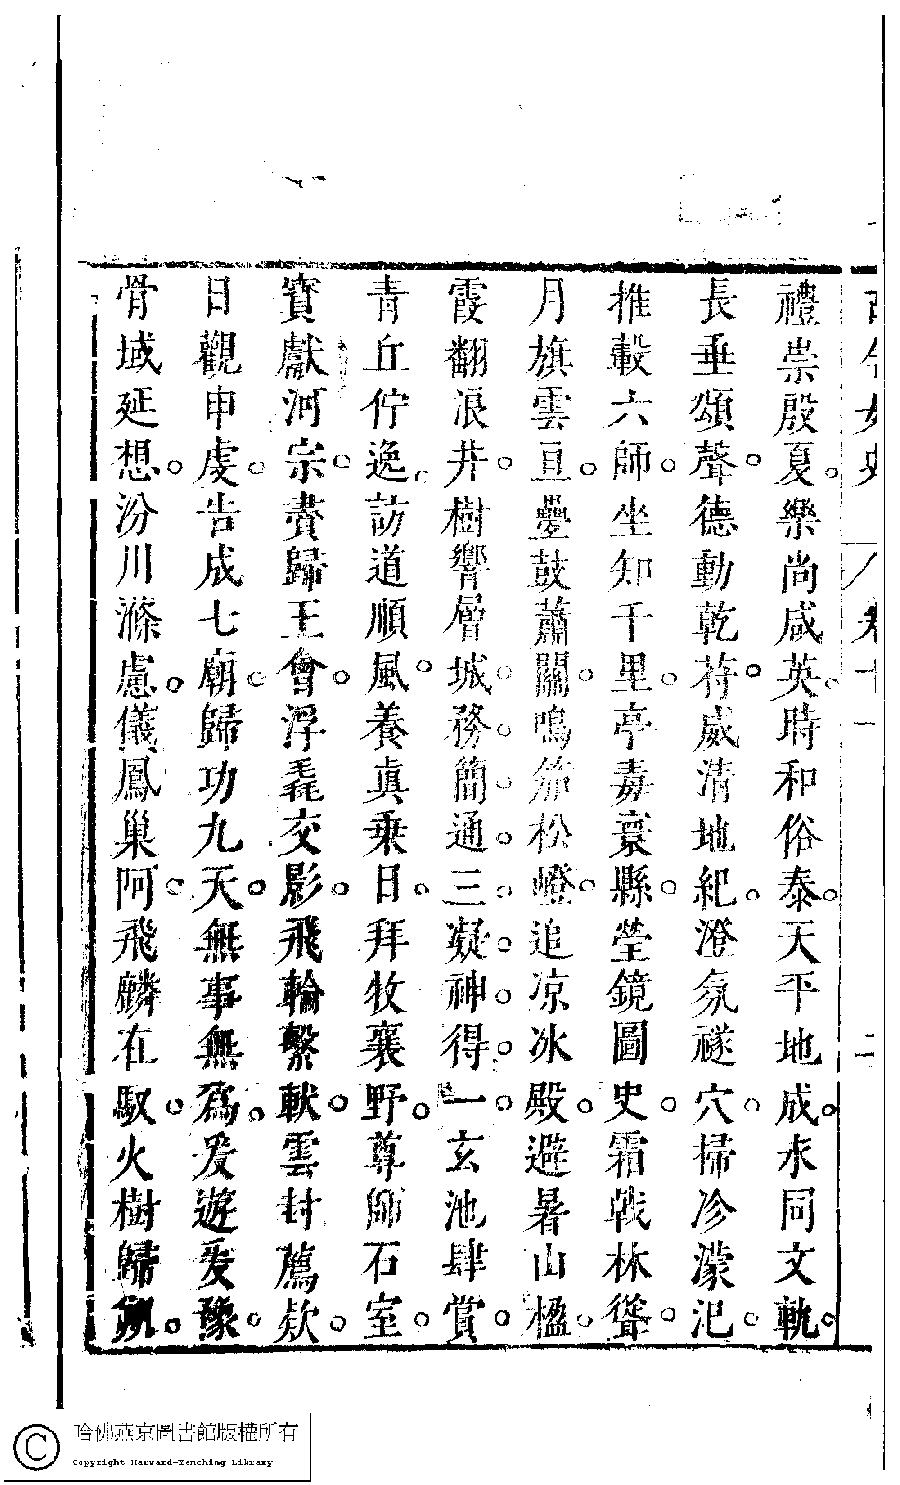 禮崇殷夏。樂尚咸英。時和俗泰。天平地成。永同文軌。
長垂頌聲。德動乾符。威清地紀。澄氛𨗉穴。掃沴濛汜。
推轂六師。坐知千里。亭毒寰縣。瑩鏡圖史。霜戟林聳。
月旗雲亘。疊鼓蕭關。鳴笳松嶝。追凉冰殿。避暑山楹。
霞翻浪井。樹響層城。務簡通三。凝神得一。玄池肆賞。
青丘佇逸。訪道順風。養眞乗日。拜牧襄野。尊師石室。
寳獻河宗。賮歸王會。浮毳交影。飛輪繫軑。雲封薦欵。
日觀申虔。告成七廟。歸功九天。無事無爲。爰遊爰豫。
骨域延想。汾川滌慮。儀鳳巢阿。飛麟在馭。火樹歸
卷十一
二
哈佛燕京圖書館版權所有
Copyright Harvard-Yenching Library